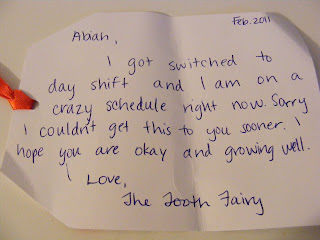 Feb. 2011
Abiah,
I got switched to
day shift and I am on a
crazy schedule right now. Sorry
I couldn't get this to you sooner. I
hope you are okay and growing well.
Love,
The Tooth Fairy